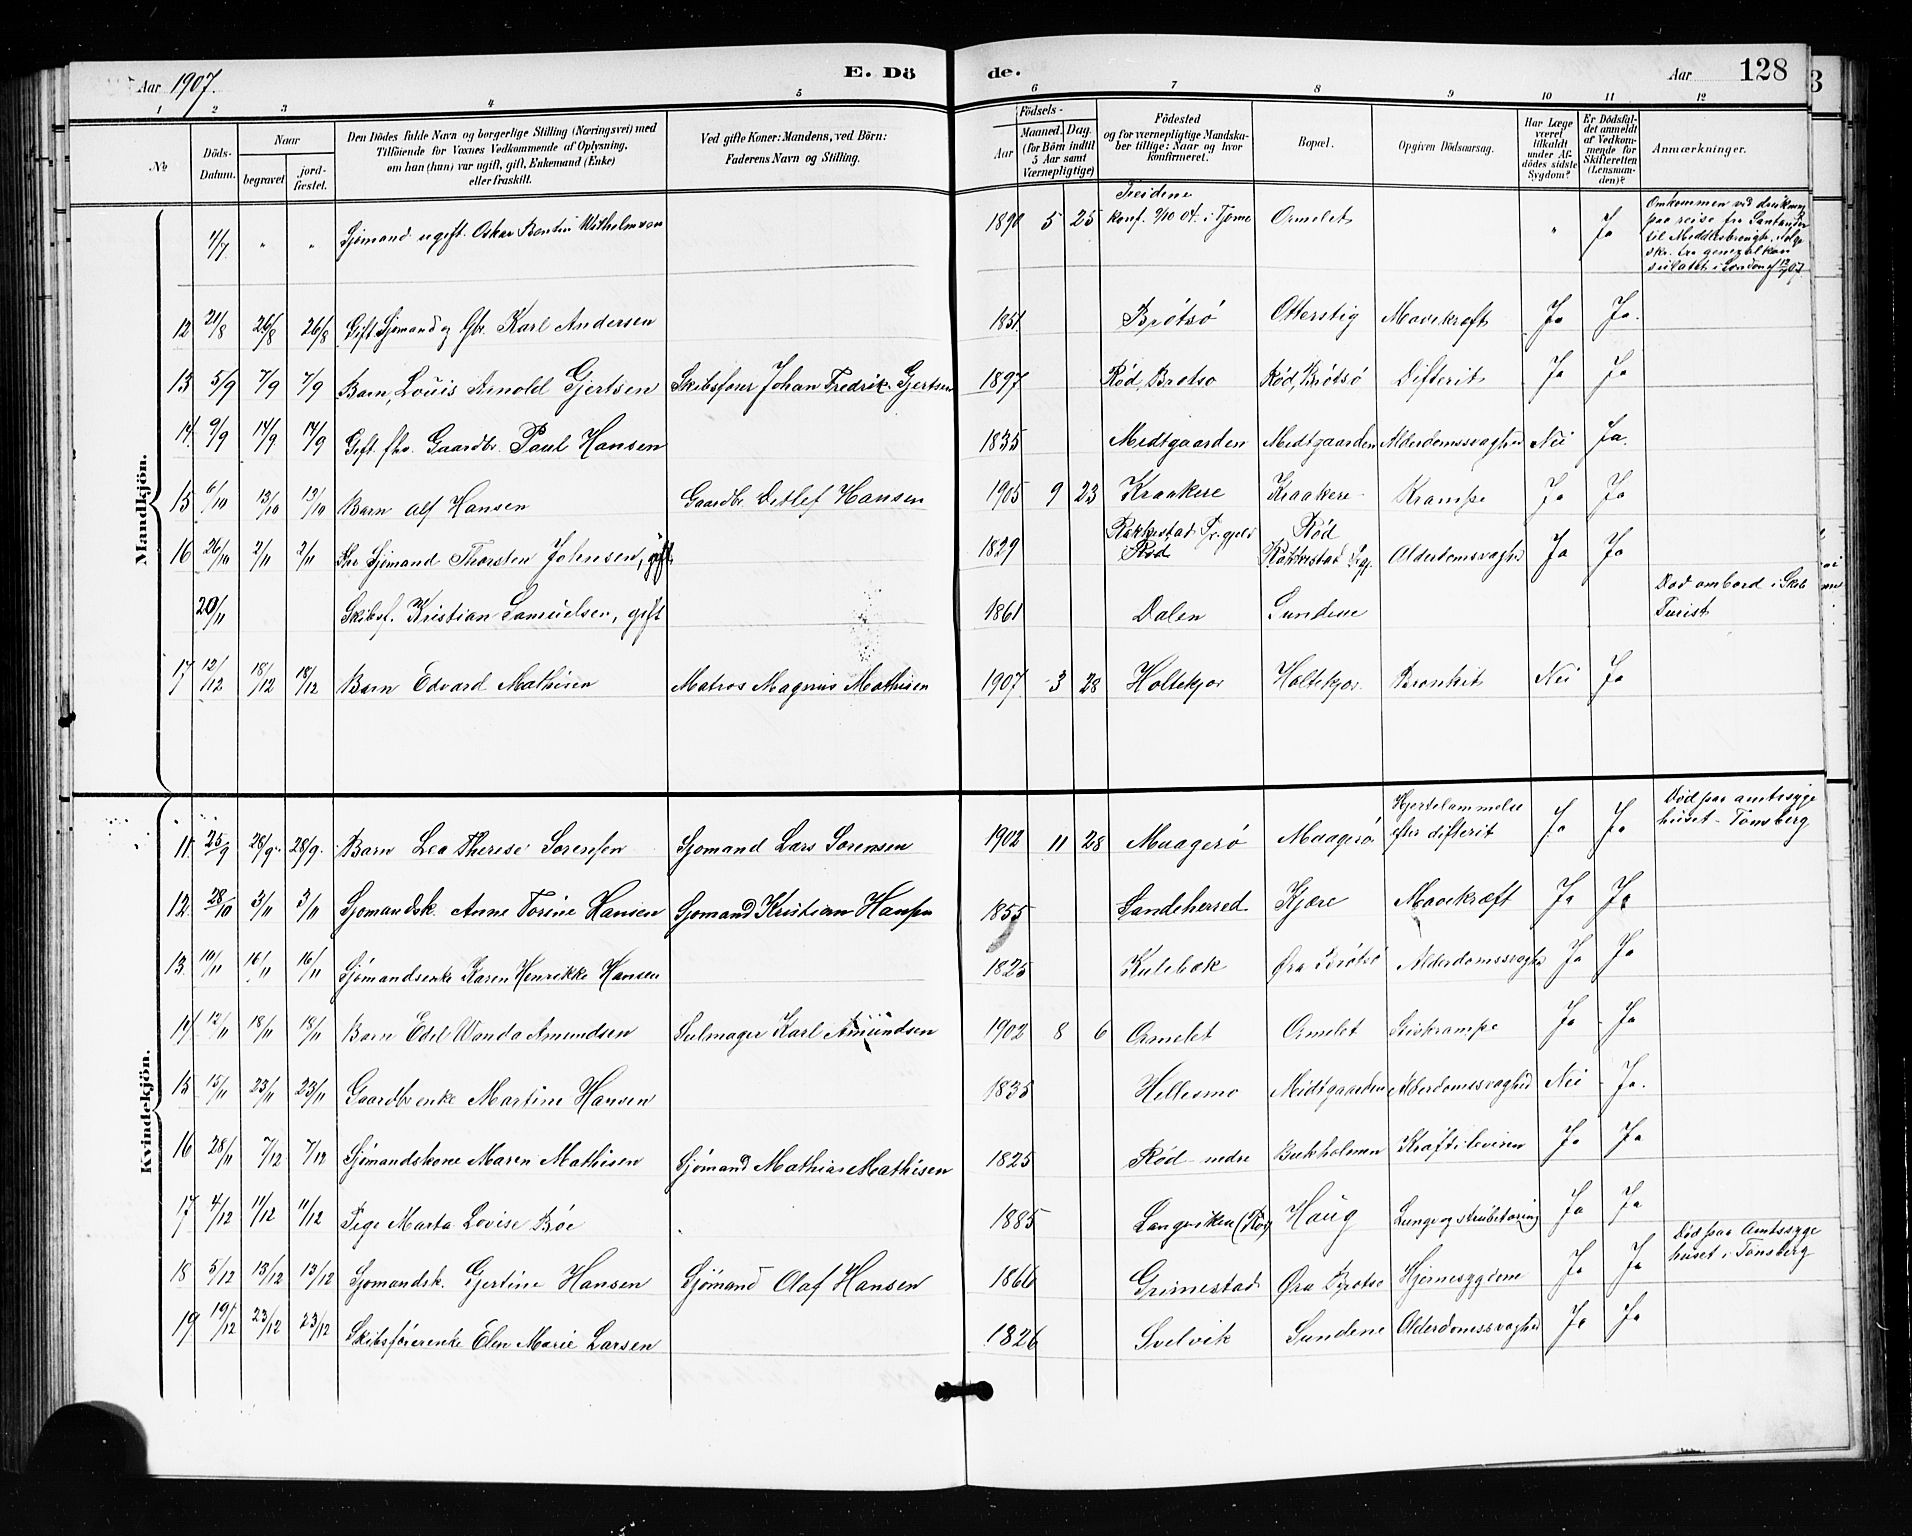 Aar 1907.
E. Dö
de.
Aar
128
1 2 3 4 5 6 7 8 9 10 11 12
No
Döds-Datum.
Naar
begravet
jord-fæstet.
Den Dödes fulde Navn og borgerlige Stilling (Næringsvei) med
Tilföiende for Voxnes Vedkommende af Oplysning,
om han (hun) var ugift, gift, Enkemand (Enke)
eller fraskilt.
Ved gifte Koner: Mandens, ved Börn:
Faderens Navn og Stilling.
Födsels-
Aar
Maaned. Dag.
(for Börn indtil
5 Aar samt
Værnepligtige)
Födested
og for værnepligtige Mandska-
ber tillige: Naar og hvor
konfirmeret.
Bopæl.
Opgiven Dödsaarsag.
Har Læge
været
tilkaldt
under Af-
dödes sidste
Sygdom?
Er Dödsfal-
det anmeldt
af Vedkom-
mende for
Skifteretten
(Lensman-
den)?
Anmærkninger.
Mandkjön.
4/7 " " Sjömand ugift. Oskar Bentin Wilhelmsen 1890 5 25 konf. 2/10 04. i Tjømø Ormelet " Ja Omkommen ved drukning
paa reise fra Santander
til Middlesbrough, ifølge
skr. fra generalkon
sulatet i London
12 21/8 26/8 26/8 Gift Sjömand og Gbr. Karl Andersen 1851 Brøtsø Otterstig Mavekræft Ja Ja.
13 5/9 7/9 7/9 Barn, Louis Arnold Gjertsen Skibsfører Johan Fredrik Gjertsen 1897 Rød, Brøtsø Rød, Brötsö Difterit Ja Ja
14 9/9 14/9 14/9 Gift fhv. Gaardbr. Paul Hansen 1835 Medtgaarden Medtgaarden Alderdomssvaghed Nei Ja.
15 6/10 13/10 13/10 Barn Alf Hansen Gaardbr. Detlef Hansen 1905 9 23 Kraakere Kraakere Krampe Ja Ja
16 26/10 2/11 2/11 Fhv Sjömand Thorsten Johnsen, gift 1829 Rakkestad Pr.gjeld Rød Rød Rakkestad Prgj. Alderdomsvaghed Ja Ja
20/11 Skibsf. Kristian Samuelsen, gift 1861 Dalen Sundene Död ombord i Skib
Turist
17 12/12 18/12 18/12 Barn Edvard Mathisen Matros Magnus Mathisen 1907 3 28 Holtekjær Holtekjær Bronkit Nei Ja
Kvindekjön.
11 25/9 28/9 28/9 Barn Lea Therese Sørensen Sjømand Lars Sørensen 1902 11 28 Maagerø Maagerø Hjertelammelse
efter difterit Ja Ja Død paa amtssyge
huset - Tønsberg
12 28/10 3/11 3/11 Sjømandsk. Anne Torine Hansen Sjømand Kristian Hansen 1855 Sandeherred Kjære Mavekræft Ja Ja
13 10/11 16/11 16/11 Sjømandsenke Karen Henrikke Hansen 1825 Kulebæk Øra Brøtsø Alderdomssvaghed Ja Ja
14 12/11 18/11 18/11 Barn Edel Wanda Amundsen Seilmager Karl Amundsen 1902 8 6 Ormelet Ormelet Ja Ja
15 15/11 23/11 23/11 Gaardbrenke Martine Hansen 1835 Hellesmo Midtgaarden Alderdomssvaghed Nei Ja.
16 28/11 7/12 7/12 Sjømandskone Maren Mathisen Sjømand Mathias Mathisen 1825 Rød nedre Bukholmen Kræft i leveren Ja Ja
17 4/12 11/12 11/12 Pige Marta Lovise Bøe 1885 Langviken Haug Lunge og strubetæring Ja Ja
18 5/12 13/12 13/12 Sjømandsk. Gjertine Hansen Sjømand Olaf Hansen 1866 Grimestad Øra Brøtsø Hjernesygdom Ja Ja Død paa Amtssyge
huset i Tønsberg
19 19/12 23/12 23/12 Skibsførerenke Elen Marie Larsen 1826 Svelvik Sundene Alderdomssvaghed Ja Ja